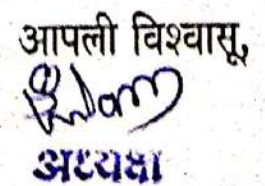 आपली विश्वासू,
अध्यक्षा